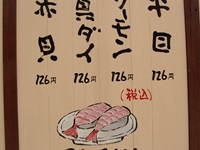 平目
126円
(税込)
サーモン
126円
真ダイ
126円
赤貝
126円